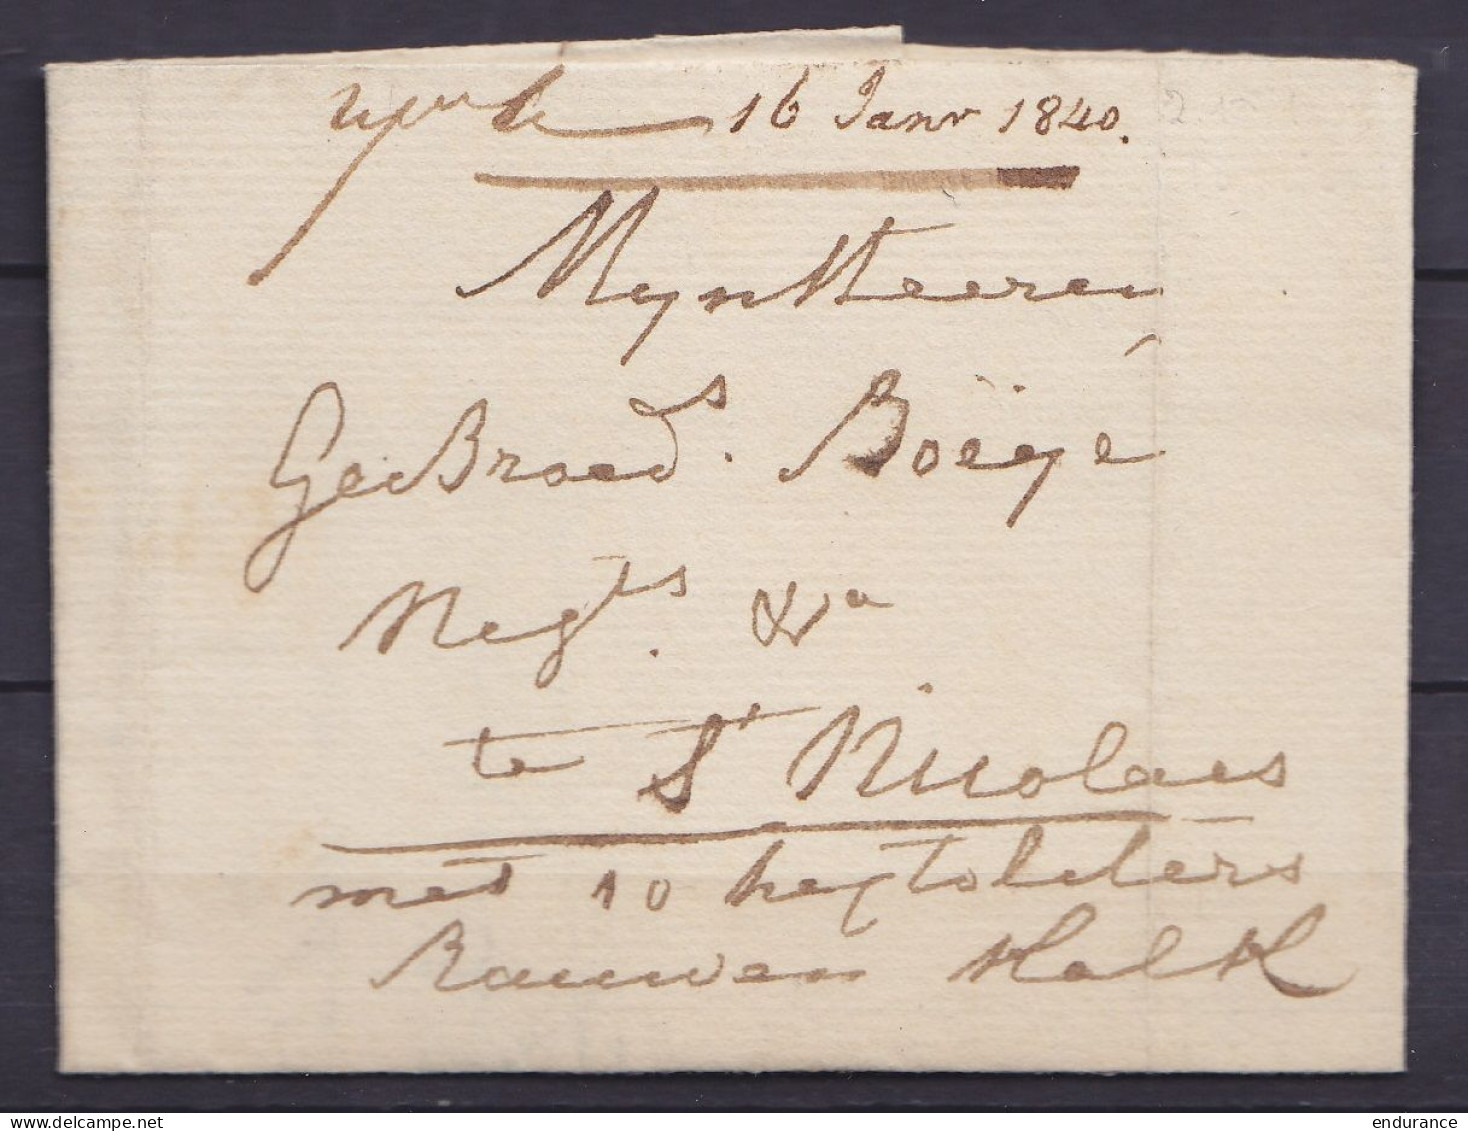 16 Janv 1840.
MynHeeren
GeBroed.s Boëyé
Neg.ts &a
te St Nicolaes
met 10 hectoliters
Rauwen Kalk
endurance